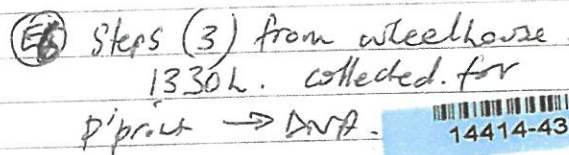 E6 Steps (3) from wheelhouse.
1330h. collected. for
p'print → DNA.
14414-43